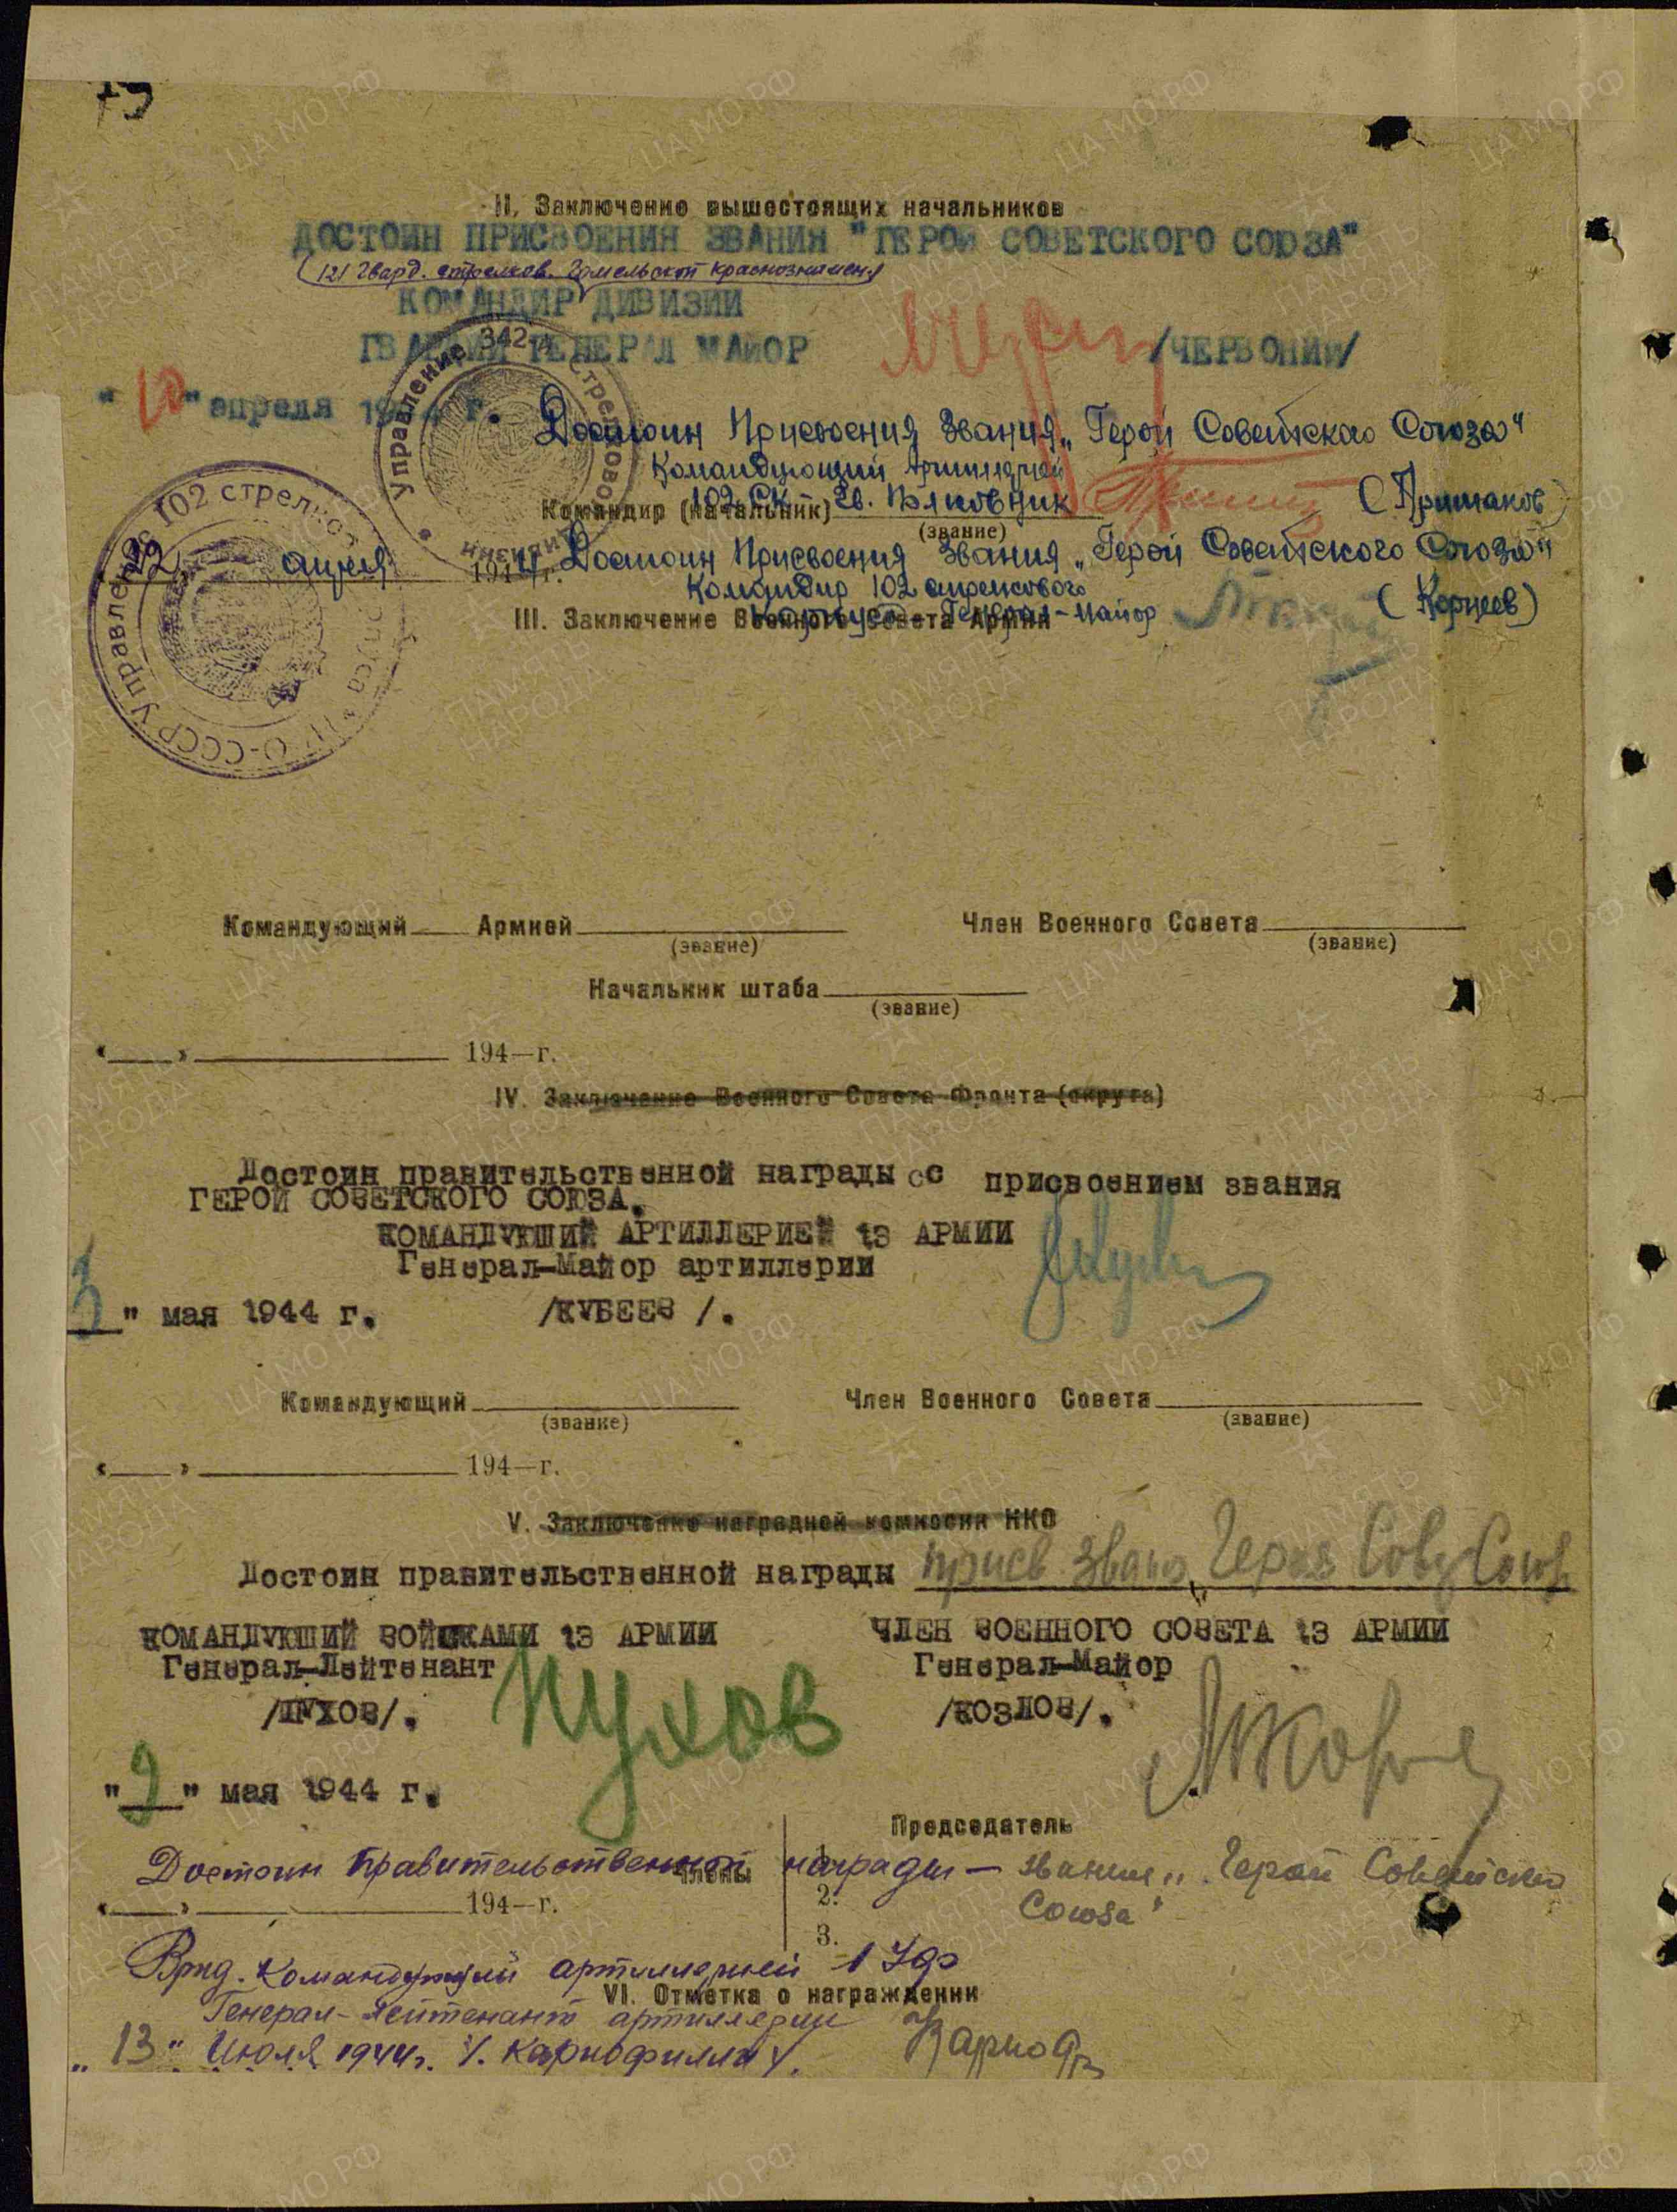 75
II. Заключение вышестоящих начальников
ДОСТОИН ПРИСВОЕНИЯ ЗВАНИЯ "ГЕРОЙ СОВЕТСКОГО СОЮЗА"
(121 Гвард. стрелков. Гомельской краснознамен.)
КОМАНДИР ДИВИЗИИ
ГВАРДИИ ГЕНЕРАЛ МАЙОР /ЧЕРВОНИЙ/
"10" апреля 1944 г.
Управление 342-й стрелковой дивизии
Достоин Присвоения Звания „Герой Советского Союза"
Командующий Артиллерией
102 СК Гв. Полковник (Примаков)
Командир (начальник)
(звание)
Управление 102 стрелкового корпуса * НКО-СССР
22 апреля 1944 г.
Достоин Присвоения Звания „Герой Советского Союза"
Командир 102 стрелкового
корпуса Генерал-майор (Корчеев)
III. Заключение Военного Совета Армии
Командующий Армией
(звание)
Член Военного Совета
(звание)
Начальник штаба
(звание)
« » 194—г.
IV. Заключение Военного Совета Фронта (округа)
Достоин правительственной награды сс присвоением звания
ГЕРОЙ СОВЕТСКОГО СОЮЗА.
КОМАНДУЮЩИЙ АРТИЛЛЕРИЕЙ 13 АРМИИ
Генерал-Майор артиллерии
3" мая 1944 г. /КУБЕЕВ /.
Командующий
(звание)
Член Военного Совета
(звание)
« » 194—г.
V. Заключение наградной комиссии НКО
Достоин правительственной награды присв. звания „Героя Сов Союз
КОМАНДУЮЩИЙ ВОЙСКАМИ 13 АРМИИ
Генерал-Лейтенант
/ПУХОВ/. Пухов
ЧЛЕН ВОЕННОГО СОВЕТА 13 АРМИИ
Генерал-Майор
/КОЗЛОВ/.
"9" мая 1944 г.
Председатель
Члены
1.
2.
3.
Достоин Правительственной награды — звание „Герой Советского
Союза"
« » 194—г.
Врид. Командующий артиллерией 1 Уф
VI. Отметка о награждении
Генерал-лейтенант артиллерии
„13" Июля 1944г. /. Карнофилли /.